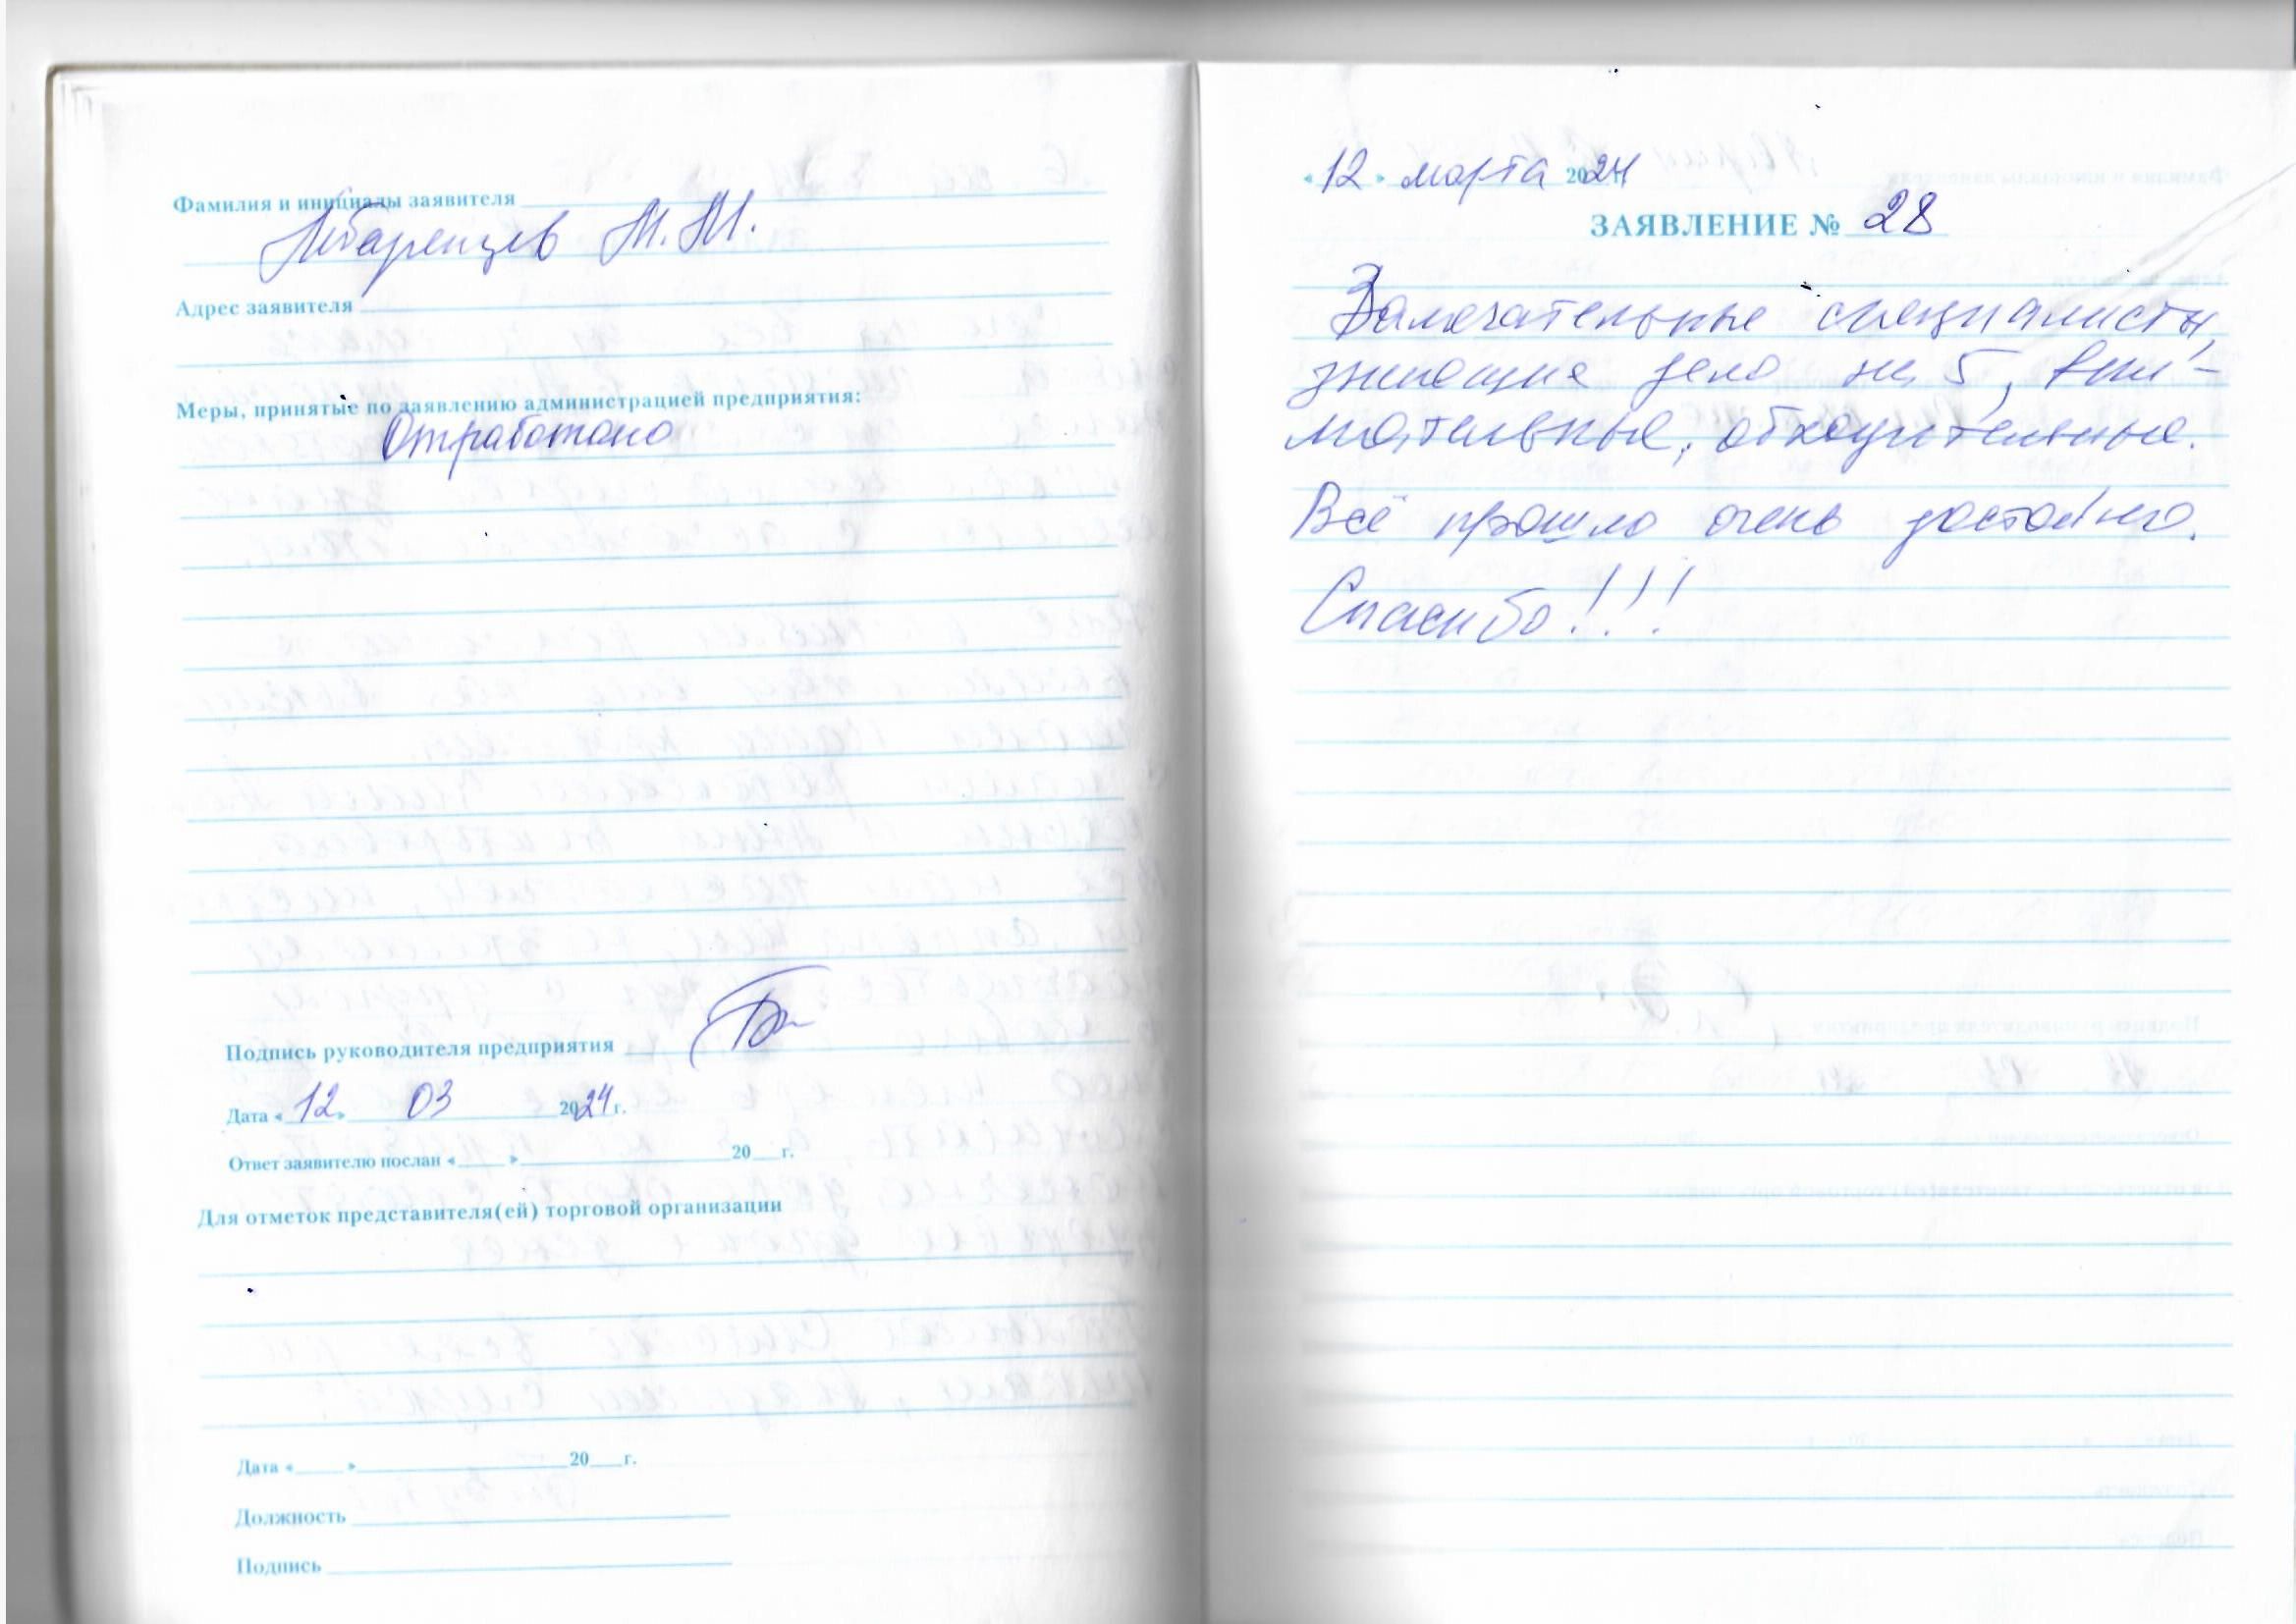 Фамилия и инициалы заявителя
М.М.
Адрес заявителя
Меры, принятые по заявлению администрацией предприятия:
Отработано
Подпись руководителя предприятия
Дата «12» 03 2024 г.
Ответ заявителю послан « » 20 г.
Для отметок представителя(ей) торговой организации
Дата « » 20 г.
Должность
Подпись
«12» марта 2024 г.
ЗАЯВЛЕНИЕ № 28
Замечательные специалисты,
знающие дело на 5, вни-
мательные, обходительные.
Всё прошло очень достойно.
Спасибо!!!